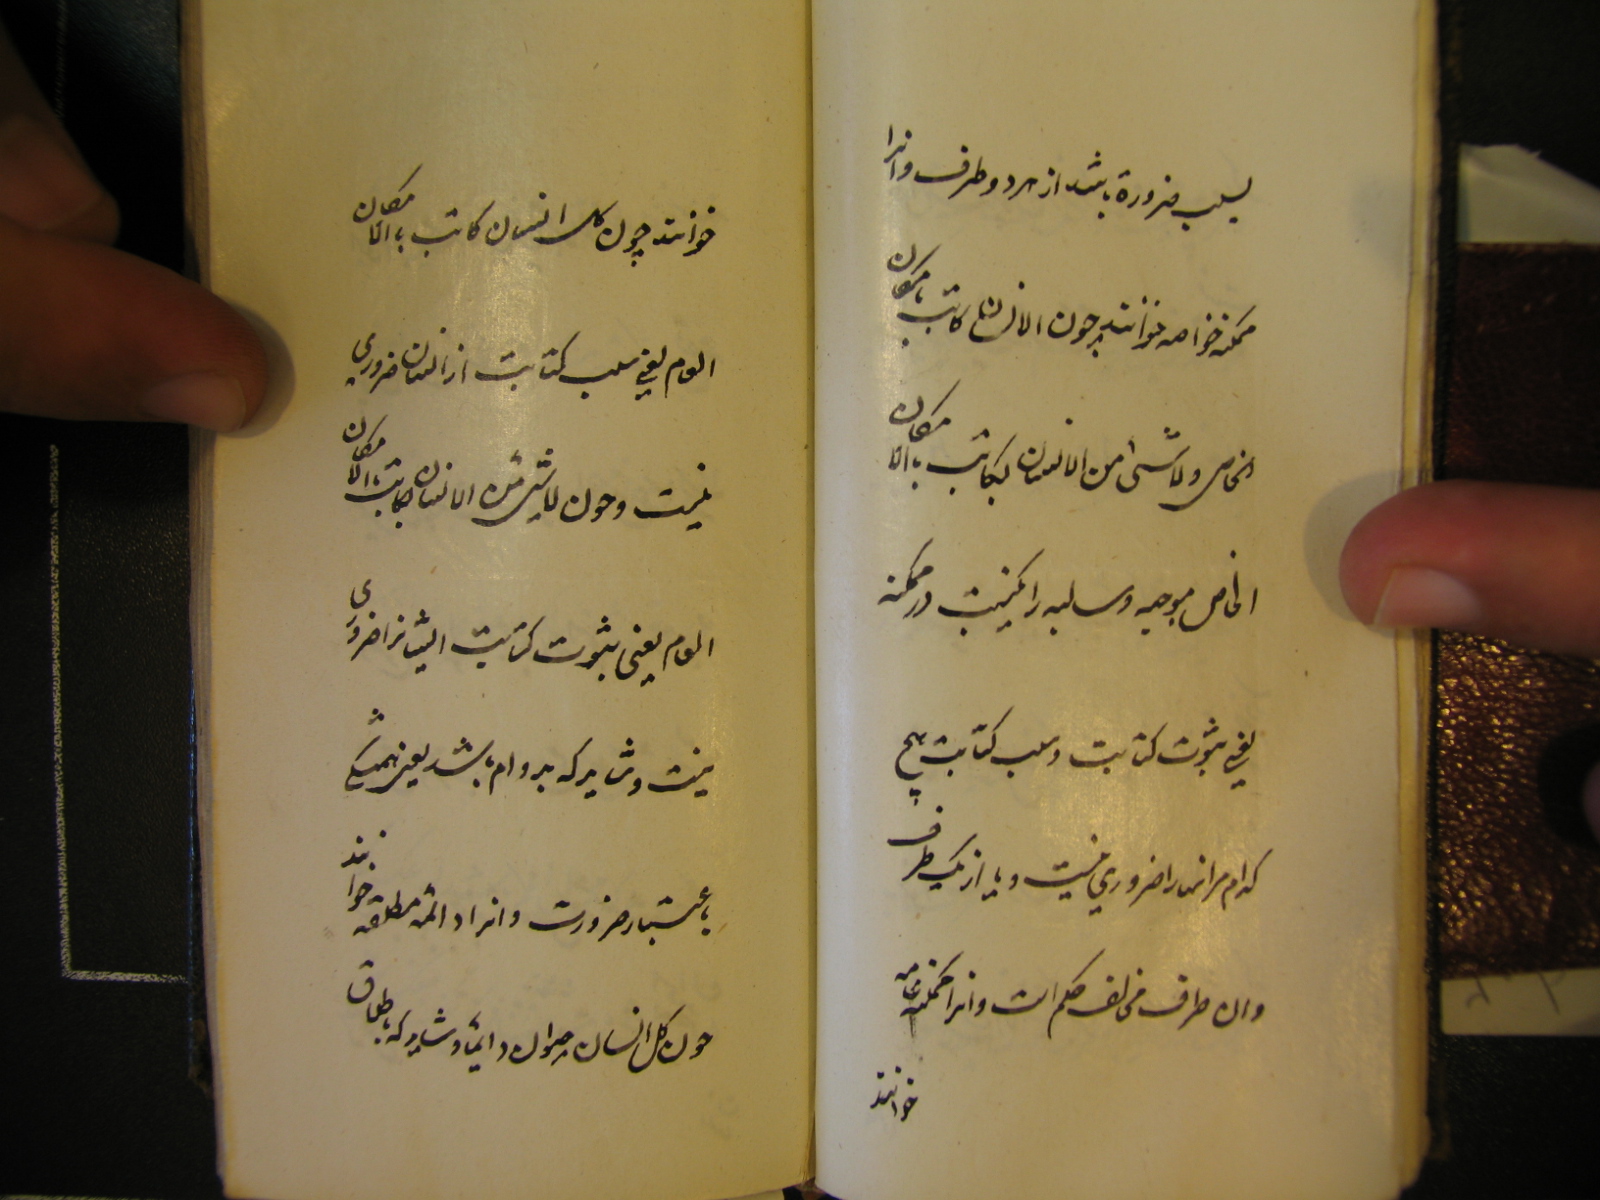 بسلب ضرورة باشد از هر دو طرف و انرا
ممکنه خاصه خوانند چون الانسان کاتب بامکان
الخاص ولا شئ من الانسان بکاتب بالامکان
الخاص موجبه وسالبه را یکیست در ممکنه
یعنی ثبوت کتابت وسلب کتابت هیچ
کدام مر انسانرا ضروری نیست و یا از یک طرف
و ان طرف مخالف حکم است و انرا ممکنه عامه
خوانند
خوانند چون کل انسان کاتب بالامکان
العام یعنی سلب کتابت از انسان ضروری
نیست و چون لا شئ من الانسان بکاتب بالامکان
العام یعنی ثبوت کتابت انسانرا ضروری
نیست و شاید که بدوام باشد یعنی همیشگی
باعتبار ضرورت و انرا دائمه مطلقه خوانند
چون کل انسان حیوان دائما و شاید که باطلاق